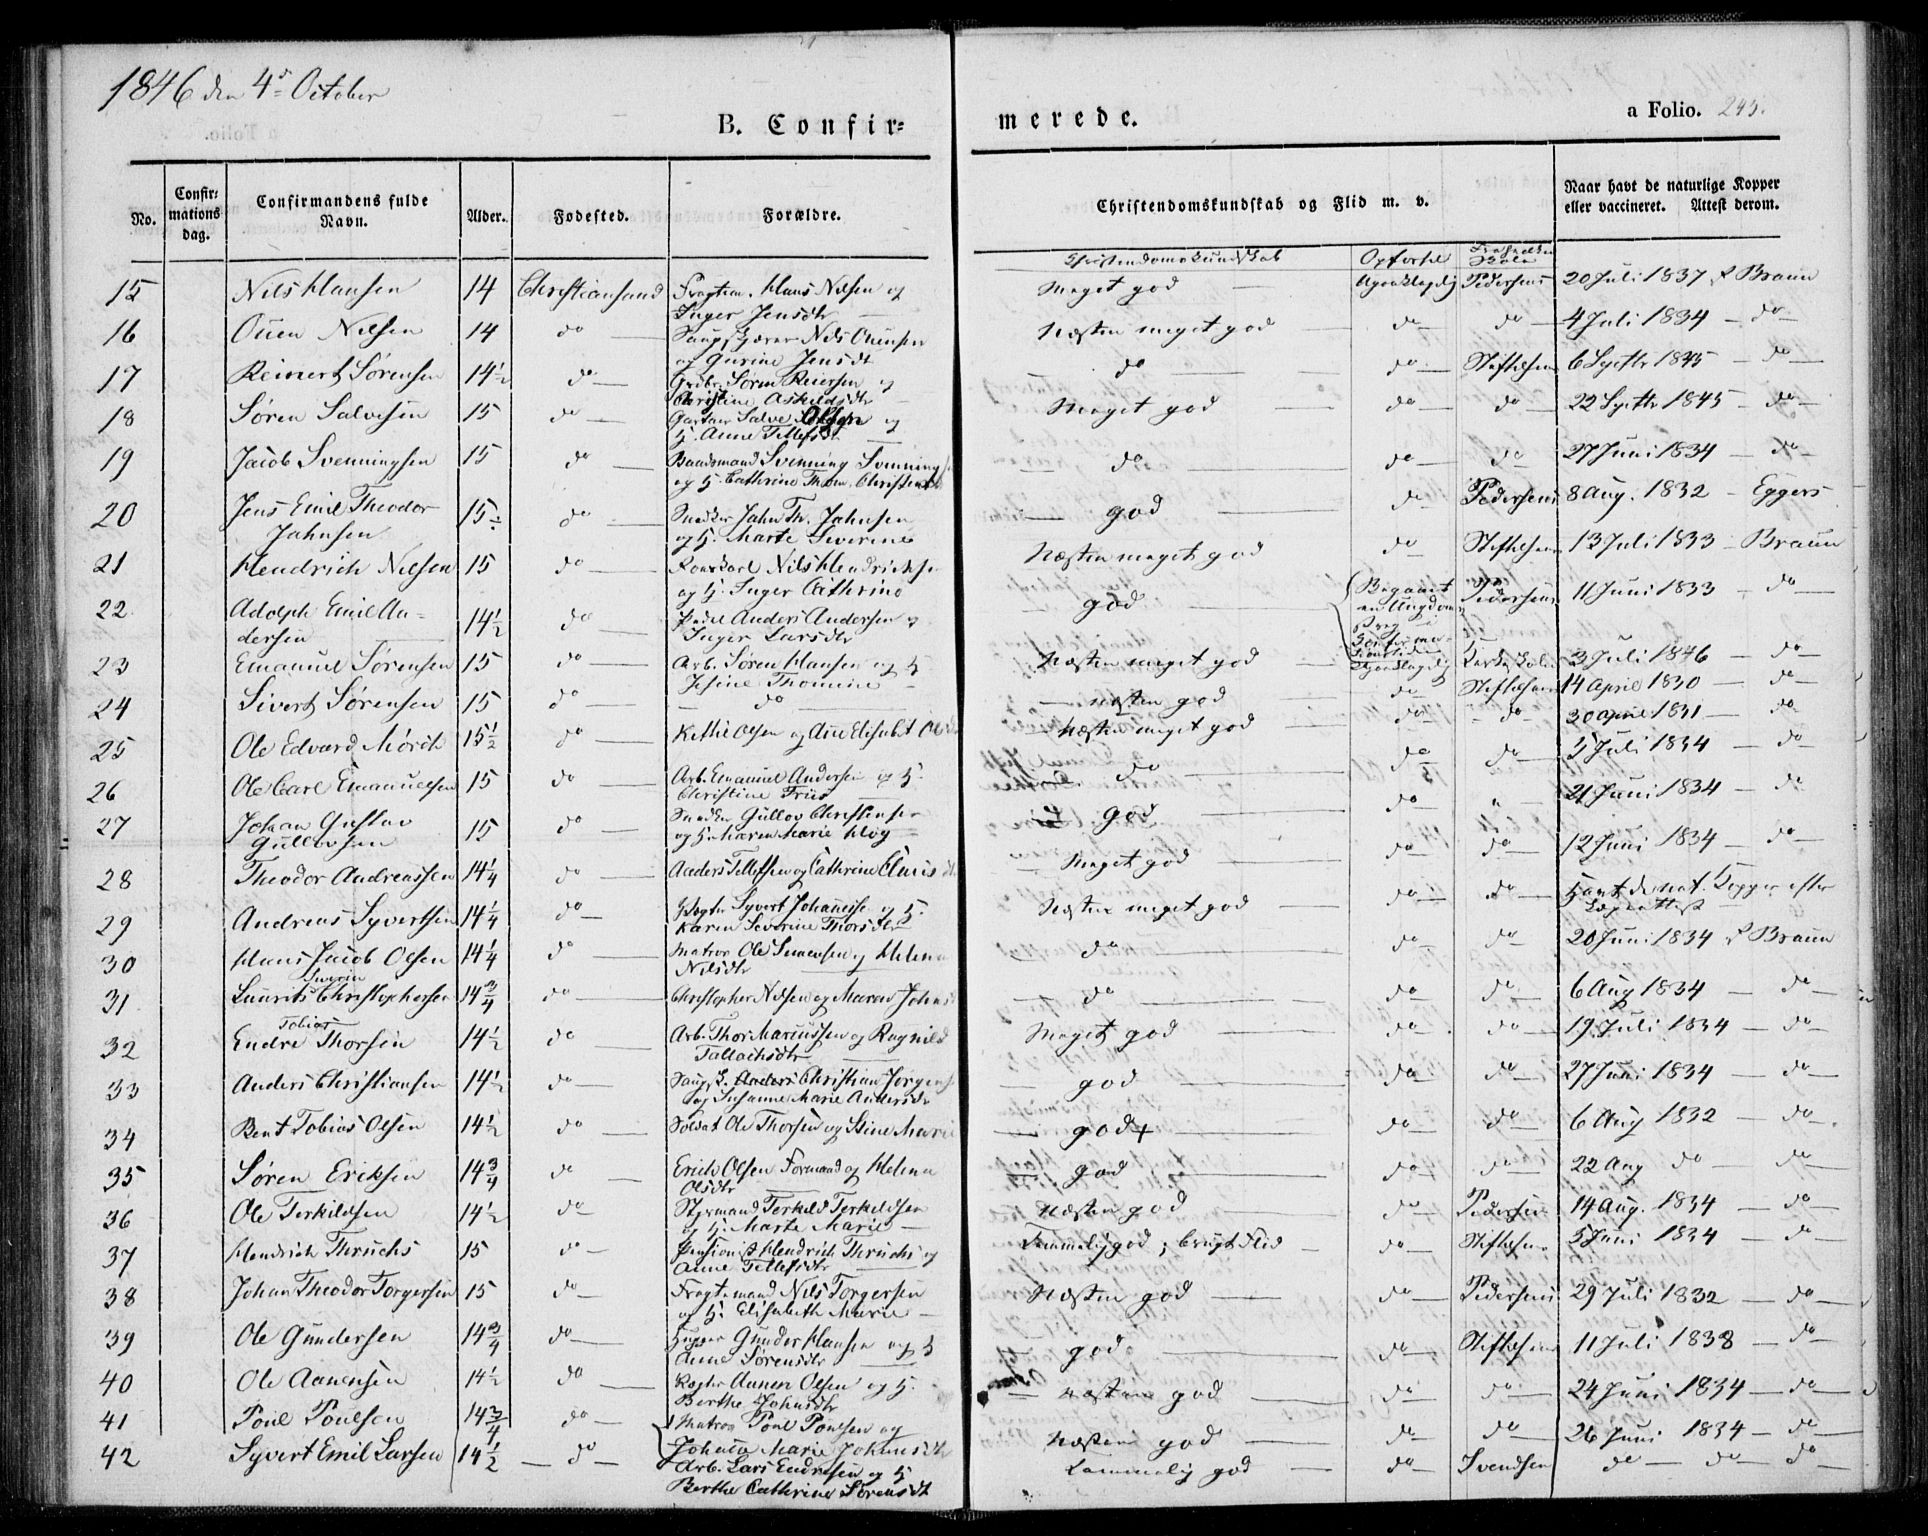 1846 den 4de October
B. Confir=
merede.
a Folio. 245.
No.
Confir=
mations
dag.
Confirmandens fulde
Navn.
Alder.
Fødested.
Forældre.
Christendomskundskab og Flid m. v.
Naar havt de naturlige Kopper
eller vaccineret. Attest derom.
Christendomskundskab Opførsel Skole
15 Nils Hansen 14 Christiansand Fragtm. Hans Nilsen og
Inger Jensdtr
Meget god Upaaklagelig Pedersens 20 Juli 1837 Braun
16 Ouen Nilsen 14 do Nils Ouensen
og Gurine Jensdt
Næsten meget god do do 4 Juli 1834 do
17 Reinert Sørensen 14½ do Grdbr. Søren Reiersen og
Christine Askildsdtr
do do Stiftelsen 6 Septbr 1845 do
18 Søren Salvesen 15 do Gartner Salve Olsen og
H. Anne Tellefsdtr
Meget god do do 22 Septbr 1845 do
19 Jacob Svenningsen 15 do Baadsmand Svenning Svenning
og H. Cathrine
do do do 27 Juni 1834 do
20 Jens Emil Theodor
Jahnsen 15½ do Snedker Jahn Th. Jahnsen
og H. Marte Severine
god do Pedersens 8 Aug. 1832 Eggers
21 Hendrich Nilsen 15 do Nils Hendrichse
og H. Inger Cathrine
Næsten meget god do Stiftelsen 13 Juli 1833 Braun
22 Adolph Emil An=
dersen 14½ do Anders Andersen og
Inger Larsdtr
god Pedersens 11 Juni 1833 do
23 Emanuel Sørensen 15 do Arb. Søren Hansen og H
Thomine
Næsten meget god Upaaklagelig 3 Juli 1846 do
24 Sivert Sørensen 15 do do
næsten god do Stiftelsen 14 April 1830 do
25 Ole Edvard Mørch 15½ do Kittil Olsen og Ane Elisabet
Næsten meget god do do 30 April 1831 do
26 Ole Carl Emanuelsen 15 do Arb. Emanuel Andersen og H.
Christine Friis
do do do 5 Juli 1834 do
27 Johan Gustav
Gullovsen 15 do Snedker Gullov Christensen
og H. Maren Marie
god do " 21 Juni 1834 do
28 Theodor Andreassen 14¼ do Anders Tellefsen og Cathrine
Meget god do do 12 Juni 1834 do
29 Andreas Syvertsen 14¼ do Syvert Johannesse og H.
Karen Severine Thorsdtr
Næsten meget god do do Havt de nat. Kopper efter
Lægeattest
30 Hans Jacob Olsen 14¼ do Matros Ole Simensen og Helene
Nilsdtr
do do do 20 Juni 1834 Braun
31 Laurits Severin Christophersen 14¾ do Christopher Nilsen og Maren
do do do 6 Aug 1834 do
32 Endre Tobias Thorsen 14½ do Arb. Thor Mariussen og Ragnild
Tallachsdtr
Meget god do do 19 Juli 1834 do
33 Anders Christiansen 14½ do Christian Jørgens
og Susanne Marie Andersdtr
god do do 27 Juni 1834 do
34 Bent Tobias Olsen 14½ do Soldat Ole Thorsen og Stine Marie
god+ do do 6 Aug 1832 do
35 Søren Eriksen 14¾ do Erich Olsen Formand og Helene
Olsdtr
god do do 22 Aug do do
36 Ole Terkildsen 14½ do Styrmand Terkild Terkildsen
og H. Marte Marie
Næsten god do Pedersens 14 Aug. 1834 do
37 Hendrich Thruchs 15 do Hendrich Thruchs og
Anne Tellefsdtr
Temmelig god, brugt Flid do Stiftelsen 5 Juni 1834 do
38 Johan Theodor Torgersen 15 do Fragtemand Nils Torgersen
og H. Elisabeth Marie
Næsten god do Pedersens 29 Juli 1832 do
39 Ole Gundersen 14¾ do Gunder Hansen og H
Anne Sørensdtr
god do Stiftelsen 11 Juli 1838 do
40 Ole Aanensen 14½ do Aanen Olsen og H.
Berthe Johnsdtr
næsten god do do 24 Juni 1834 do
41 Poul Poulsen 14¾ do Matros Poul Poulsen og
Johana Marie
Næsten god do do 26 Juni 1834 do
42 Syvert Emil Larsen 14½ do Arb. Lars Endresen og H
Berthe Cathrine Sørensdtr
Temmelig god do Svendsen do do do